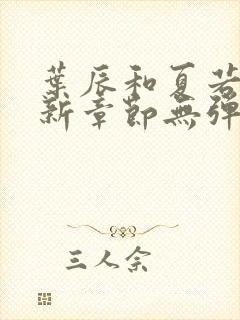 葉辰和夏若
新章節無彈
三人余